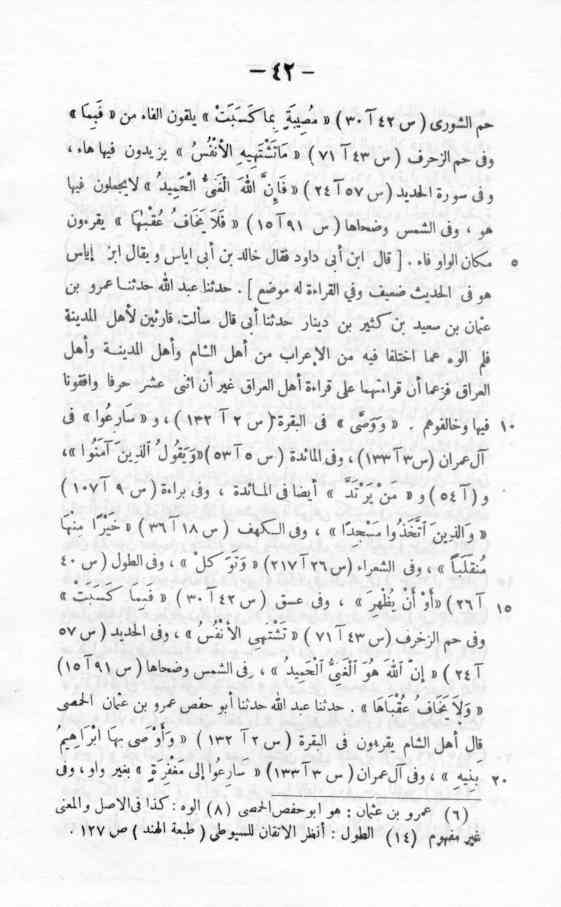 – ٤٢ –
حم الشورى ( س ٤٢ آ ٣٠ ) « مُصِيبَةٍ بِمَا كَسَبَتْ » يلقون الفاء من « فَبِمَا »
وفى حم الزخرف ( س ٤٣ آ ٧١ ) « مَا تَشْتَهِيهِ الْأَنْفُسُ » يزيدون فيها هاء ،
وفى سورة الحديد ( س ٥٧ آ ٢٤ ) « فَإِنَّ اللهَ الْغَنِىُّ الْحَمِيدُ » لا يجعلون فيها
هو ، وفى الشمس وضحاها ( س ٩١ آ ١٥ ) « فَلَا يَخَافُ عُقْبَٰهَا » يقرءون
مكان الواو فاء . [ قال ابن أبى داود فقال خالد بن أبى اياس ويقال ابن إياس ٥
هو فى الحديث ضعيف وفي القراءة له موضع ] . حدثنا عبد الله حدثنا عمرو بن
عثمان بن سعيد بن كثير بن دينار حدثنا أبى قال سألت قارئين لأهل المدينة
فلم الوه عما اختلفا فيه من الإعراب من أهل الشام وأهل المدينة وأهل
العراق فزعما أن قراءتهما على قراءة أهل العراق غير أن اثنى عشر حرفا وافقونا
فيها وخالفوهم . « وَوَصَّى » فى البقرة ( س ٢ آ ١٣٢ ) ، و « سَارِعُوا » فى ١٠
آل عمران ( س ٣ آ ١٣٣ ) ، وفى المائدة ( س ٥ آ ٥٣ ) « وَيَقُولُ الَّذِينَ آمَنُوا » ،
و ( آ ٥٤ ) و « مَنْ يَرْتَدَّ » أيضا فى المائدة ، وفى براءة ( س ٩ آ ١٠٧ )
« وَالَّذِينَ اتَّخَذُوا مَسْجِدًا » ، وفى الكهف ( س ١٨ آ ٣٦ ) « خَيْرًا مِنْهَا
مُنْقَلَبًا » ، وفى الشعراء ( س ٢٦ آ ٢١٧ ) « وَتَوَكَّلْ » ، وفى الطول ( س ٤٠
آ ٢٦ ) « أَوْ أَنْ يُظْهِرَ » ، وفى عسق ( س ٤٢ آ ٣٠ ) « فَبِمَا كَسَبَتْ » ١٥
وفى حم الزخرف ( س ٤٣ آ ٧١ ) « تَشْتَهِى الْأَنْفُسُ » ، وفى الحديد ( س ٥٧
آ ٢٤ ) « إِنَّ اللهَ هُوَ الْغَنِىُّ الْحَمِيدُ » ، وفى الشمس وضحاها ( س ٩١ آ ١٥ )
« وَلَا يَخَافُ عُقْبَاهَا » . حدثنا عبد الله حدثنا أبو حفص عمرو بن عثمان الحمصى
قال أهل الشام يقرءون فى البقرة ( س ٢ آ ١٣٢ ) « وَأَوْصَى بِهَا إِبْرَاهِيمُ
بَنِيهِ » ، وفى آل عمران ( س ٣ آ ١٣٣ ) « سَارِعُوا إِلَى مَغْفِرَةٍ » بغير واو ، وفى ٢٠
(٦) عمرو بن عثمان : هو ابو حفص الحمصى (٨) الوه : كذا فى الاصل والمعنى
غير مفهوم (١٤) الطول : أنظر الاتقان للسيوطى ( طبعة الهند ) ص ١٢٧ .